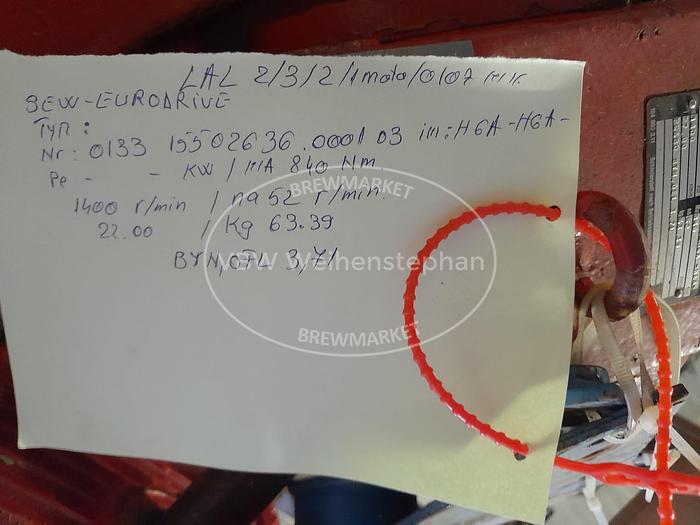 LAL 2/3/2/1 moto/0107
SEW-EURODRIVE
Typ:
Nr: 0133 15502636.0001 03 im: H6A-H6A-
Pe - - KW / MA 840 Nm
1400 r/min / na 52 r/min.
22.00 / Kg 63.39
3,71
BREWMARKET
VLW Weihenstephan
BREWMARKET